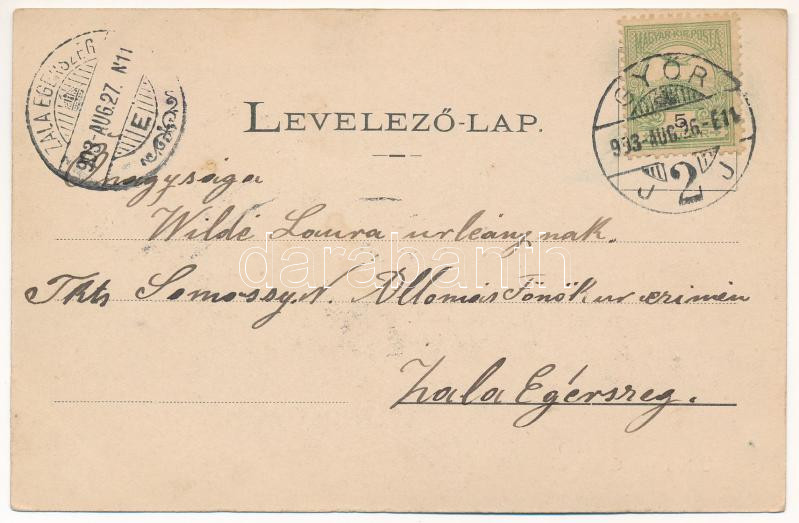 MAGYAR·KIR·POSTA
5
GYŐR
903-AUG.26.-E11
J 2 J
ZALA EGERSZEG
903-AUG.27. N11
E
LEVELEZŐ-LAP.
Ő nagysága
Wildé Laura urleánynak.
darabanth
Tkts Somossy N. Állomás Főnök ur czimén
Zala Egérszeg.